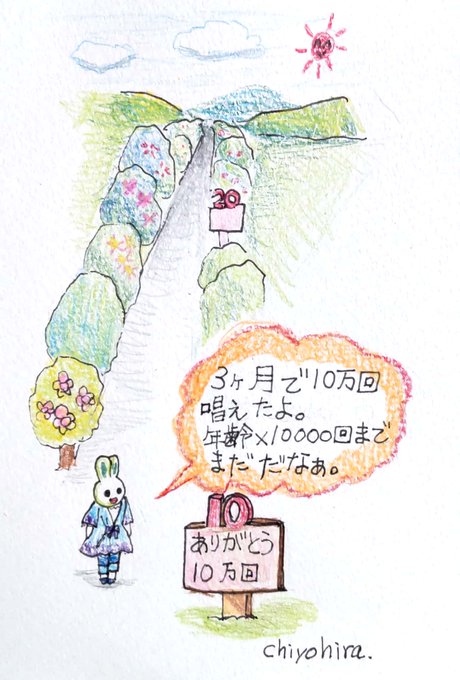 20
3ヶ月で10万回
唱えたよ。
年齢×10000回まで
まだだなぁ。
10
ありがとう
10万回
chiyohira.